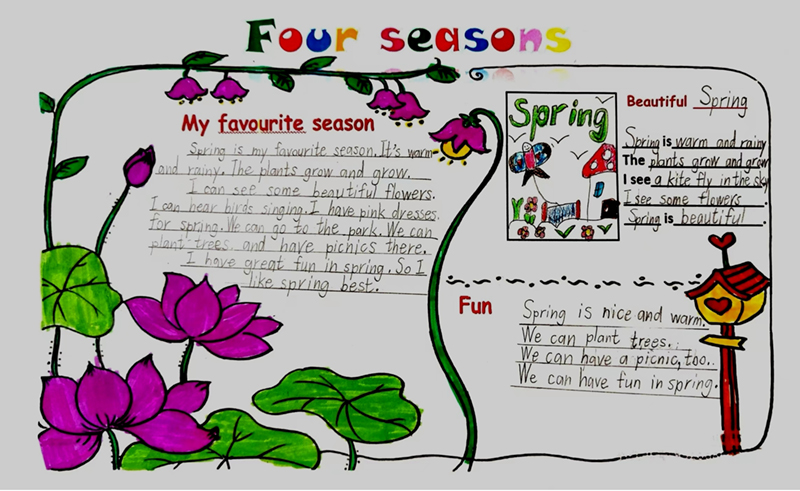 Four seasons
My favourite season
Spring is my favourite season. It's warm
and rainy. The plants grow and grow.
I can see some beautiful flowers.
I can hear birds singing. I have pink dresses
for spring. We can go to the park. We can
plant trees and have picnics there.
I have great fun in spring. So I
like spring best.
Spring
Beautiful Spring
Spring is warm and rainy
The plants grow and grow
I see a kite fly in the sky
I see some flowers.
Spring is beautiful.
Fun
Spring is nice and warm.
We can plant trees.
We can have a picnic, too.
We can have fun in spring.